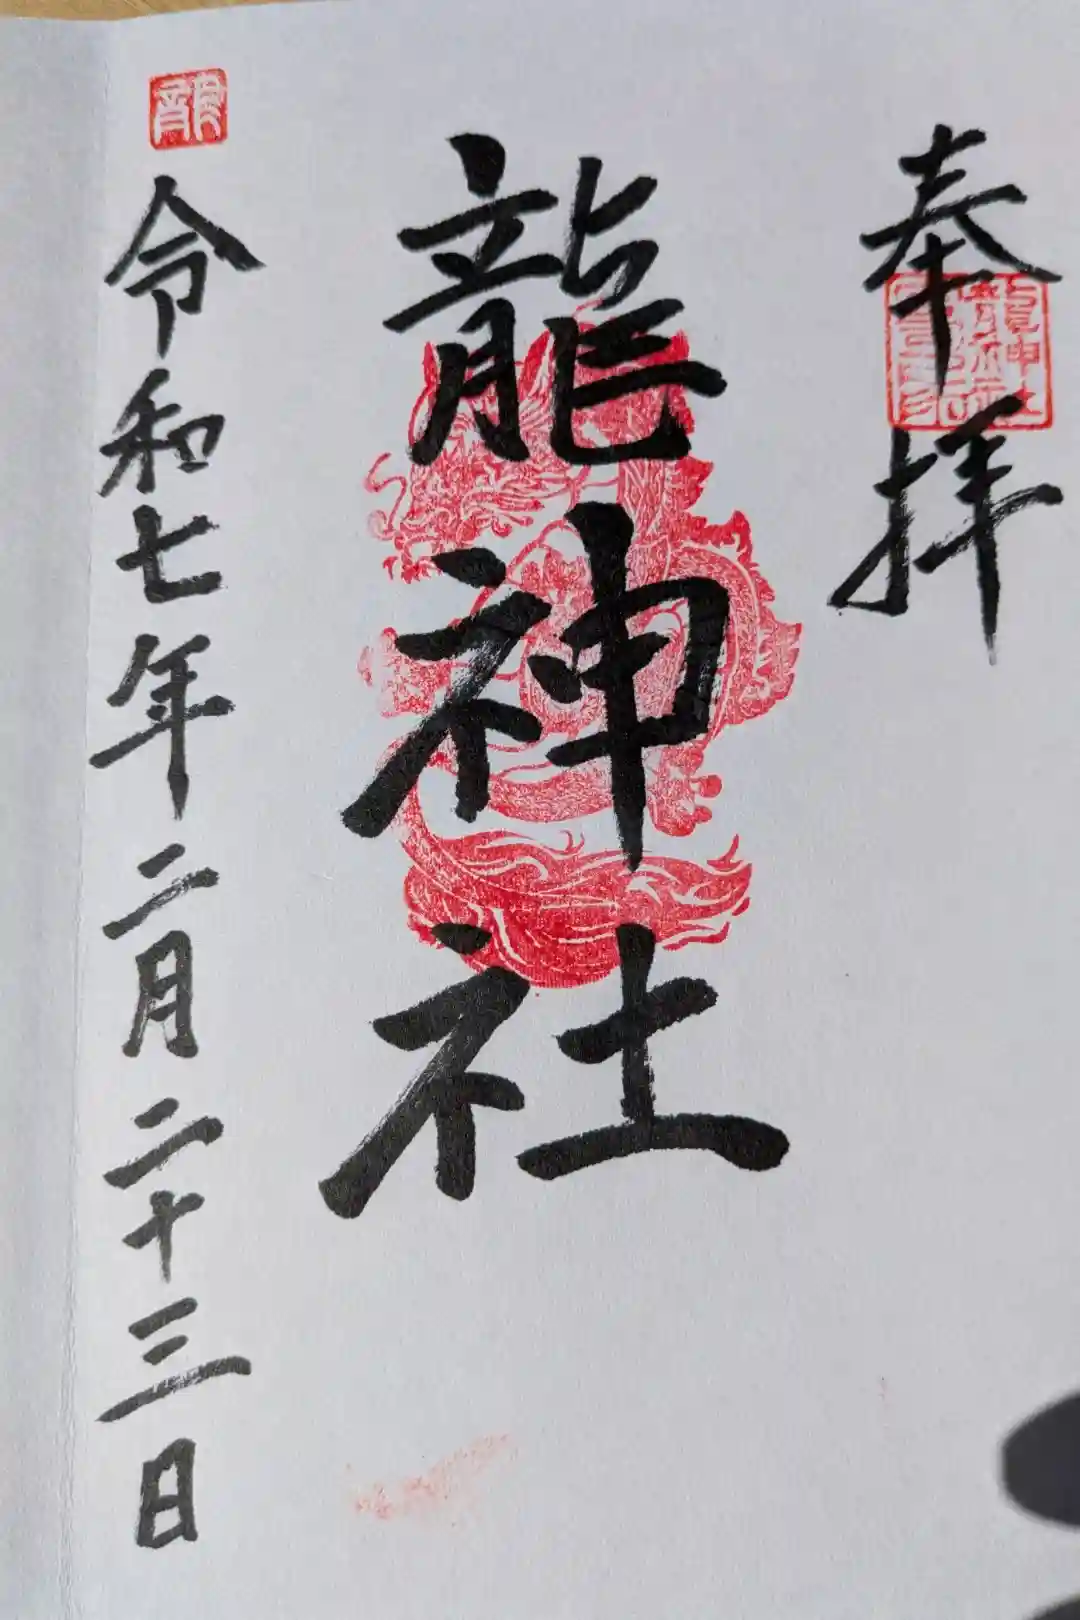 奉拝
龍神社
龍
令和七年二月二十三日